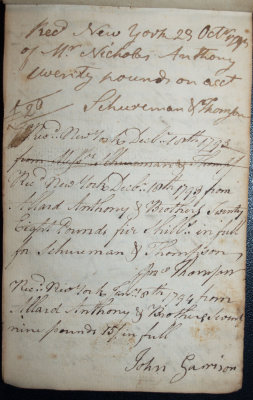 Recd New York 23 Octr 1793
of Mr Nicholas Anthony
twenty pounds on acct
£20 Schureman & Thompson
Recd New York Decbr 10th 1793
from Messrs Schureman &
Recd New York Decbr 18th 1793 from
Allard Anthony & Brothers Seventy
Eight Pounds five Shills in full
for Schureman & Thompson
Jno Thompson
Recd New York Jany 8th 1794 from
Allard Anthony & Brothers
nine pounds 15/ in full
John Garrison